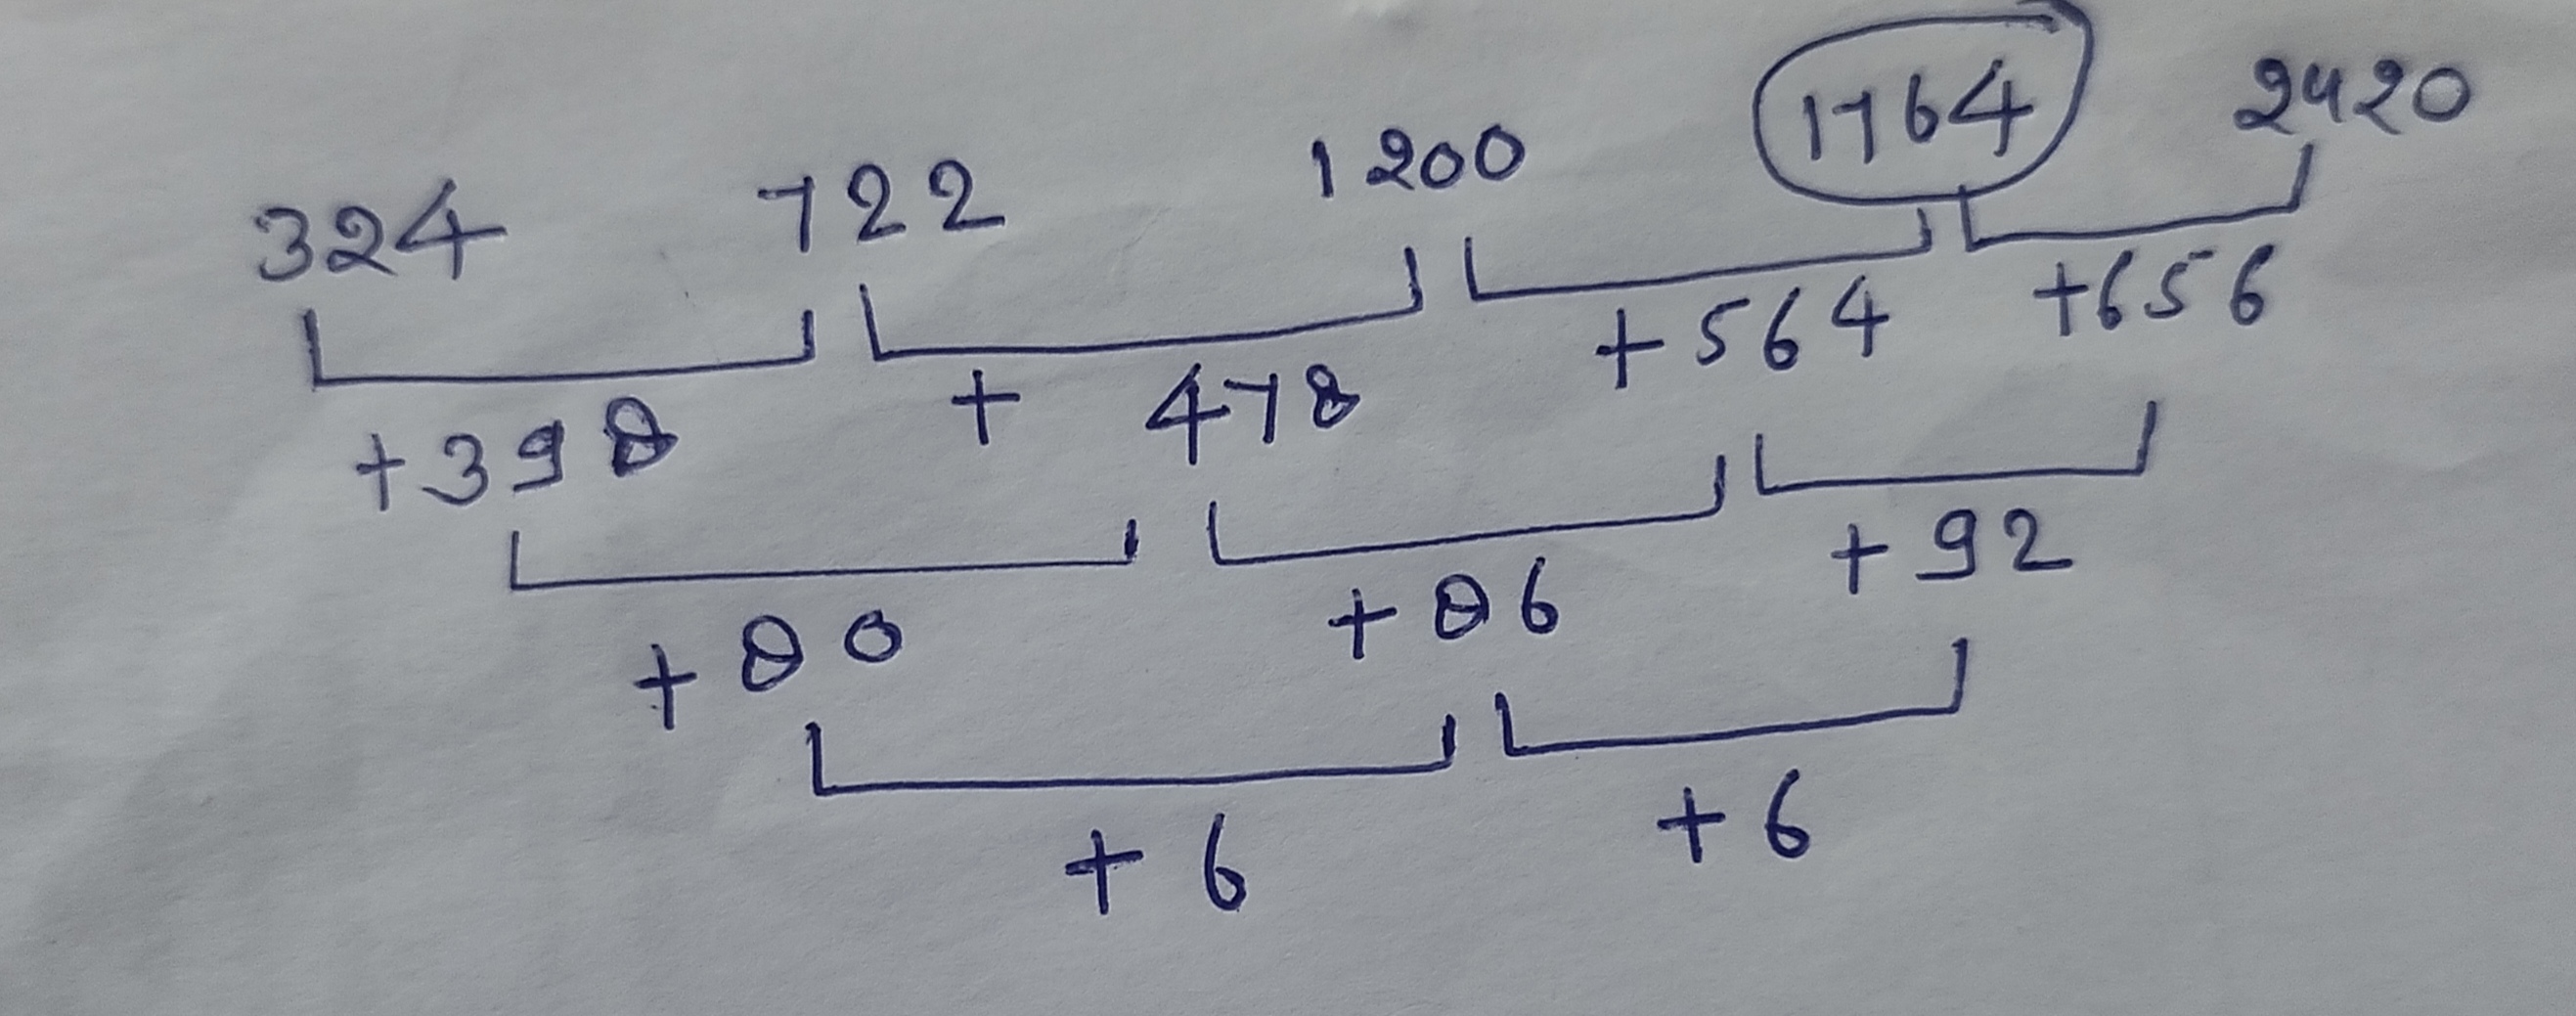 324 722 1200 1764 2420
+398 + 478 +564 +656
+80 +86 +92
+6 +6